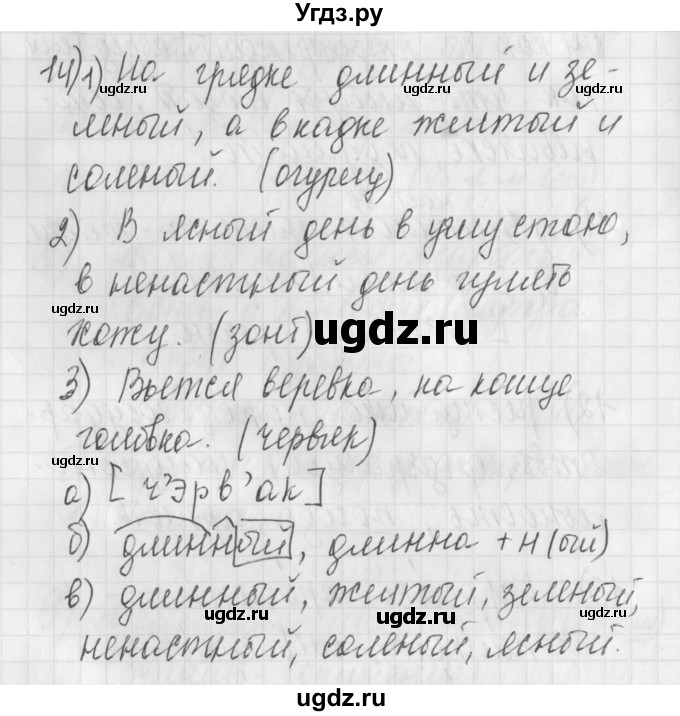 Угдз.ру
14) 1) На грядке длинный и зе-
леный, а в кадке желтый и
соленый. (огурец)
2) В ясный день в углу стою,
в ненастный день гулять
ugdz.ru
ugdz.ru
хожу. (зонт)
ugdz.ru
3) Вьется веревка, на конце
головка. (червяк)
ugdz.ru
ugdz.ru
а) [ч’эрв’ак]
б) длинный, длинна + н (ый)
в) длинный, желтый, зеленый,
ugdz.ru
ugdz.ru
ненастный, соленый, ясный.
ugdz.ru